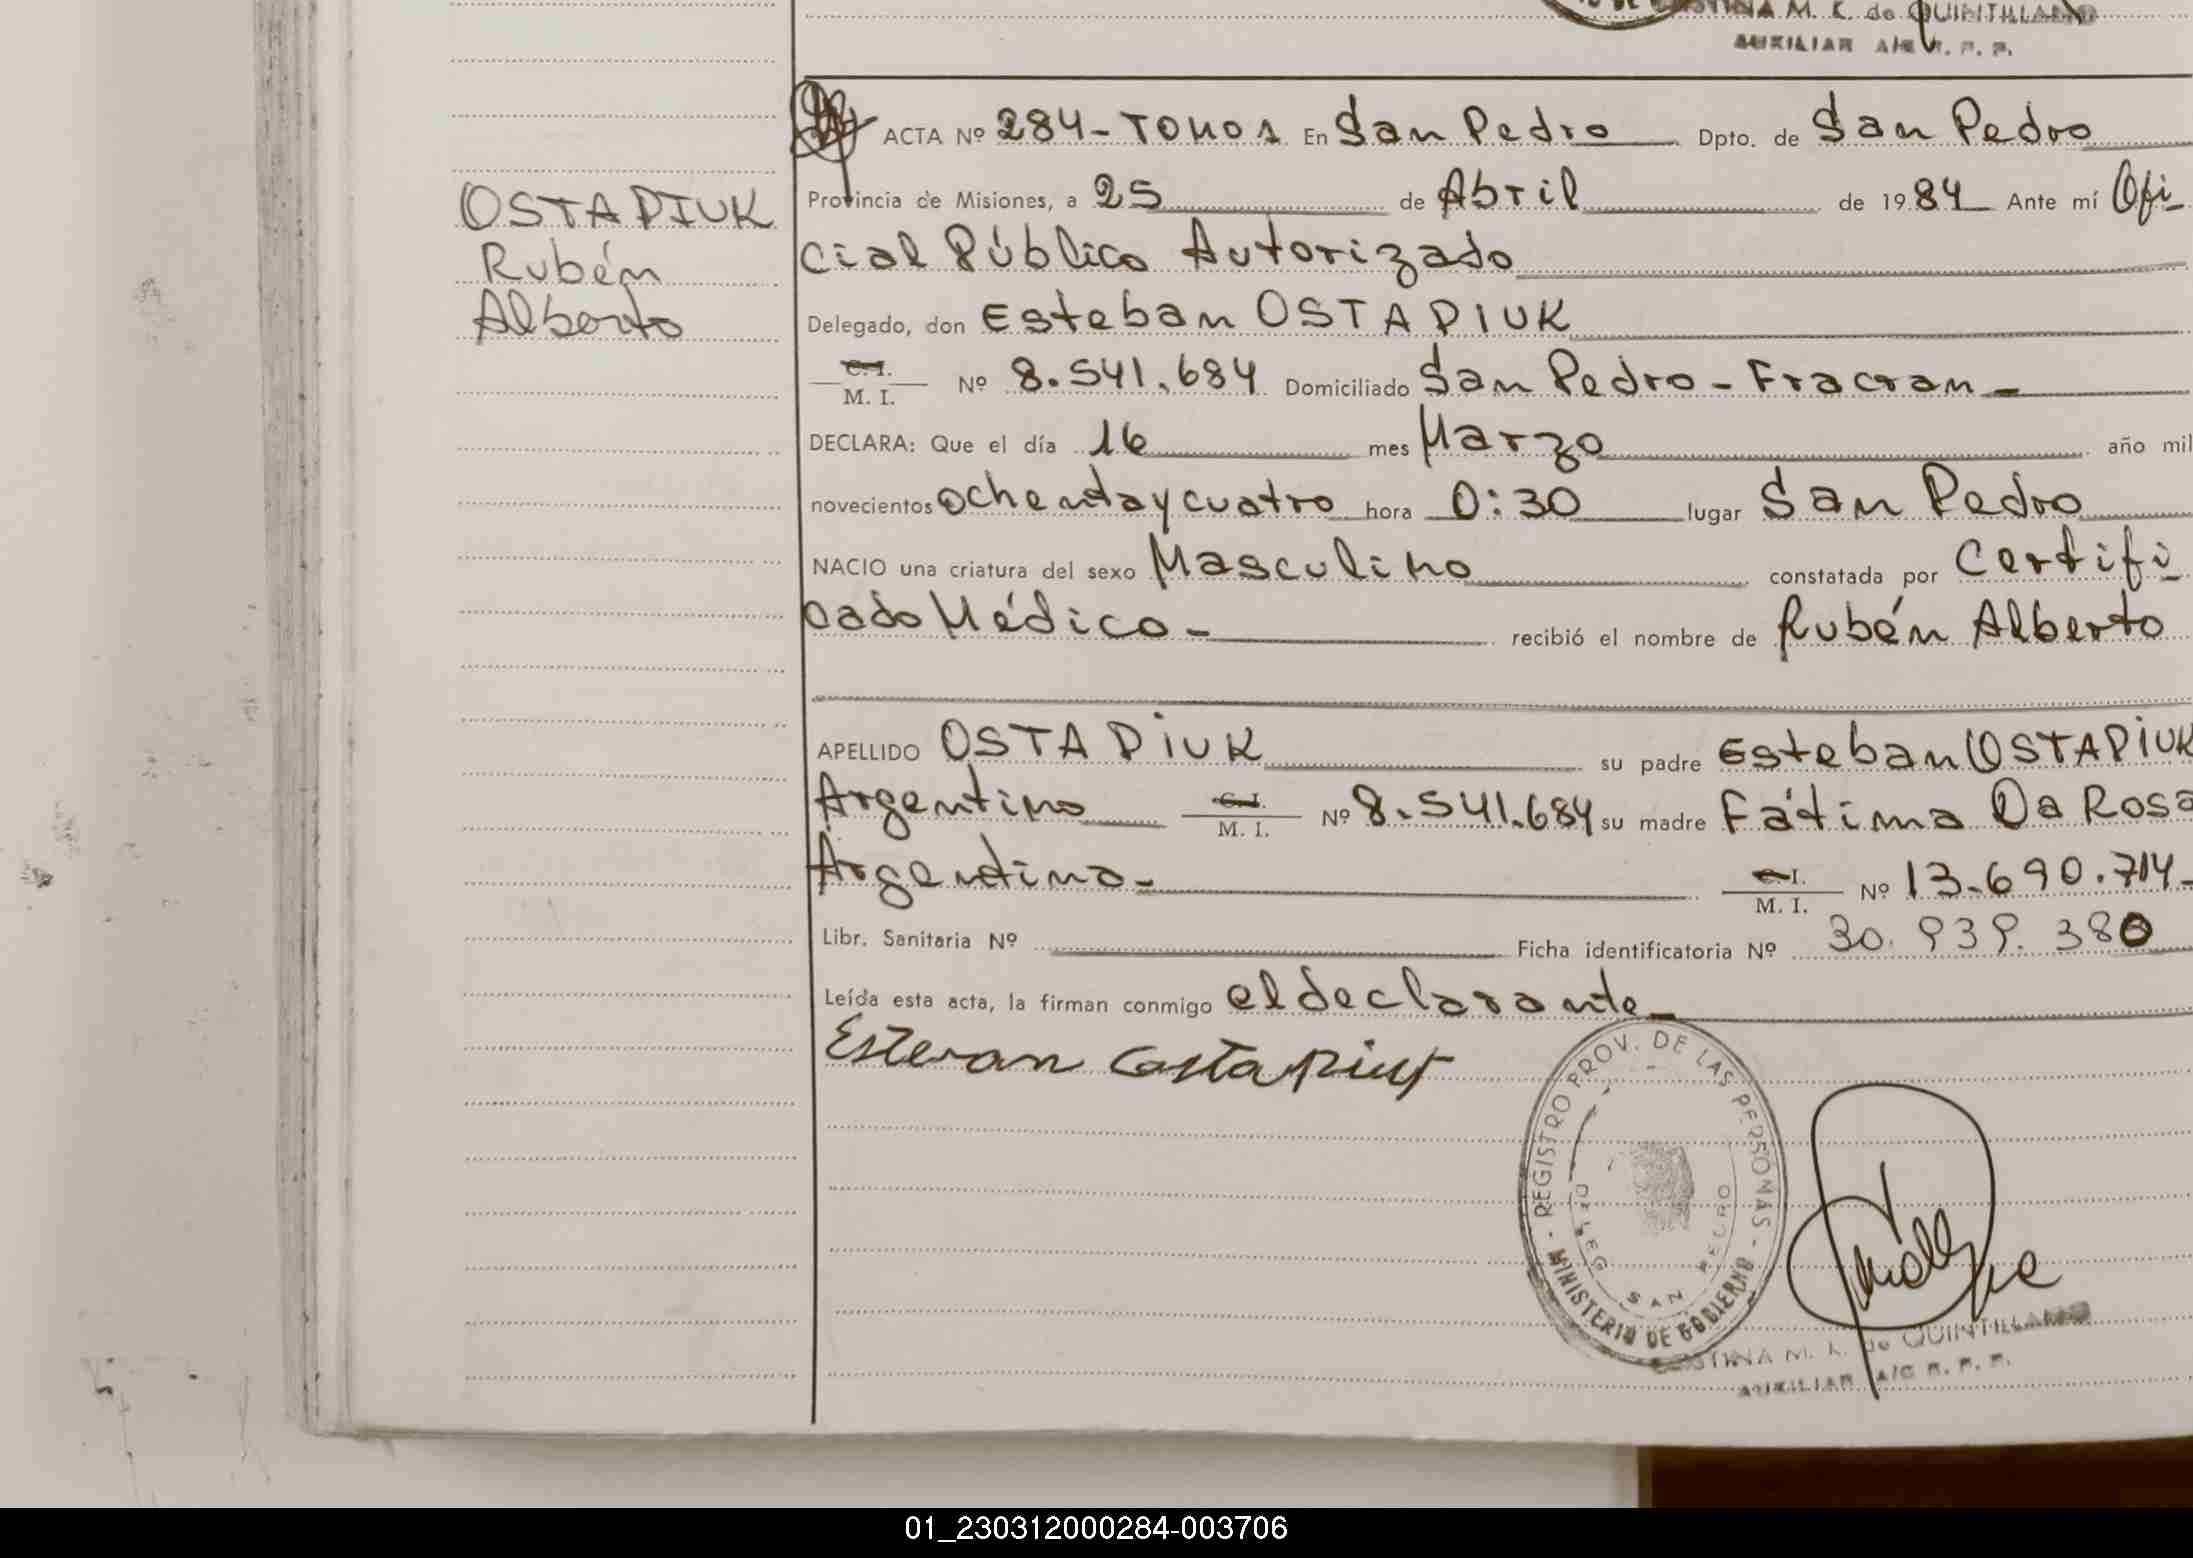 CRISTINA M. K. de QUINTILLANO
AUXILIAR A/C R. P. P.
OSTAPIUK
Rubén
Alberto
ACTA Nº 284-TOMO1 En San Pedro Dpto. de San Pedro
Provincia de Misiones, a 25 de Abril de 1984 Ante mí Ofi
cial Público Autorizado
Delegado, don Esteban OSTAPIUK
C. I.
M. I. Nº 8.541.684 Domiciliado San Pedro - Fracran -
DECLARA: Que el día 16 mes Marzo año mil
novecientos ochenta y cuatro hora 0:30 lugar San Pedro
NACIO una criatura del sexo Masculino constatada por Certifi
cado Médico - recibió el nombre de Rubén Alberto
APELLIDO OSTAPIUK su padre Esteban OSTAPIUK
Argentino C. I. M. I. Nº 8.541.684 su madre Fátima Da Rosa
Argentina - C. I. M. I. Nº 13.690.714-
Libr. Sanitaria Nº Ficha identificatoria Nº 30.939.380
Leída esta acta, la firman conmigo el declarante -
Estevan Ostapiuk
- REGISTRO PROV. DE LAS PERSONAS -
MINISTERIO DE GOBIERNO
DELEG. SAN PEDRO
CRISTINA M. K. de QUINTILLANO
AUXILIAR A/C R. P. P.
01_230312000284-003706